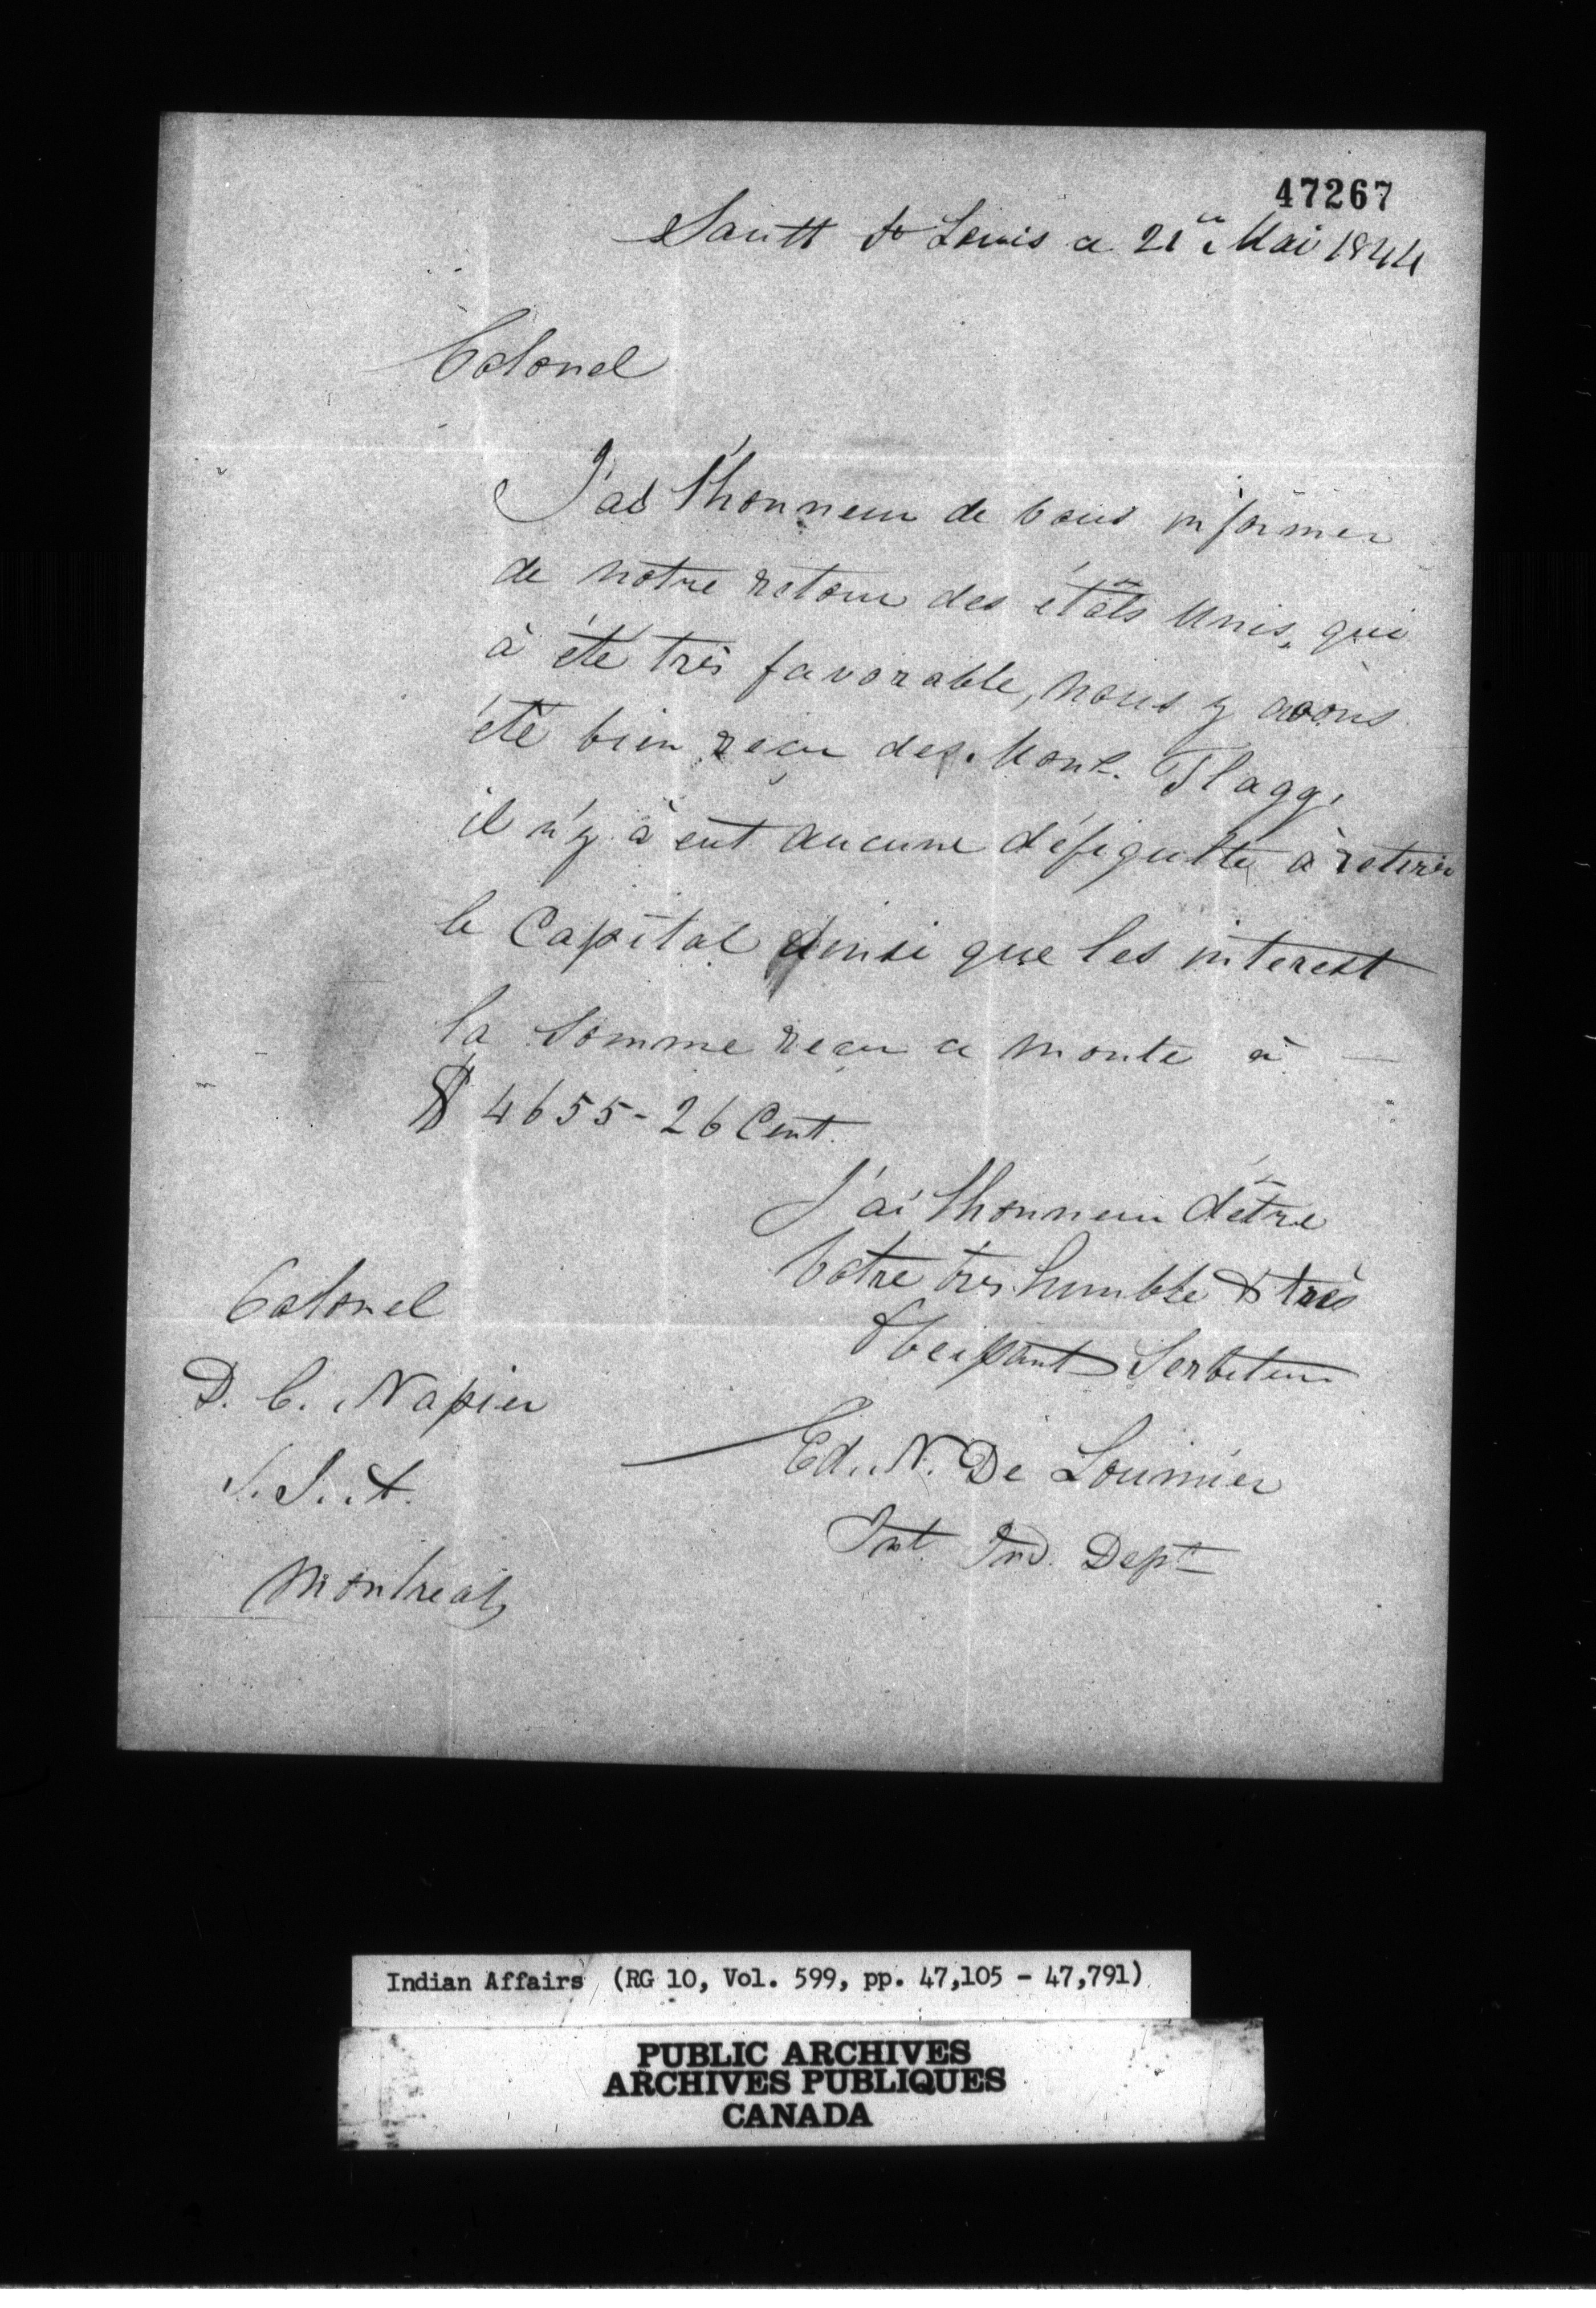 47267
Sautt St Louis ce 21e Mai 1844
Colonel
J'ai l'honneur de vous informer
de notre retour des états Unis, qui
à été très favorable, nous y avons
été bien reçu des Mons. Flagg,
il n'y à eut aucune déficulté à retirer
le Capital ainsi que les interest
la Somme reçu ce monte à
$ 4655-26 Cent.
J'ai l'honneur d'être
Votre très humble & très
Obeissant Serviteur
Ed. N. De Lorimier
Int. Ind. Dept
Colonel
D. C. Napier
S. I. A.
Montreal
Indian Affairs (RG 10, Vol. 599, pp. 47,105 - 47,791)
PUBLIC ARCHIVES
ARCHIVES PUBLIQUES
CANADA